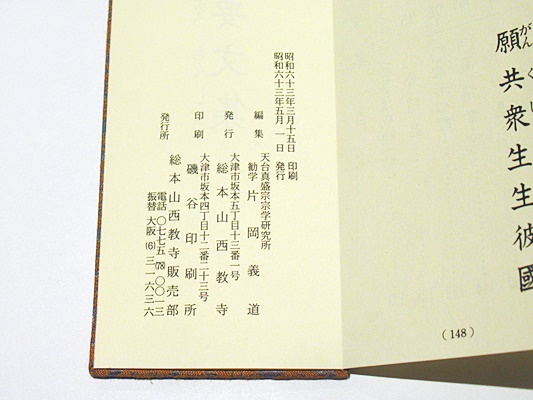 願共衆生生彼國
がん
(148)
昭和六十三年三月十五日 印刷
昭和六十三年五月一日 発行
編集 天台真盛宗宗学研究所
勧学 片岡義道
大津市坂本五丁目十三番一号
発行 総本山西教寺
大津市坂本四丁目十二番二十三号
印刷 磯谷印刷所
発行所 総本山西教寺販売部
電話 〇七七五(78)〇〇一三
振替 大阪(6)三一六三六